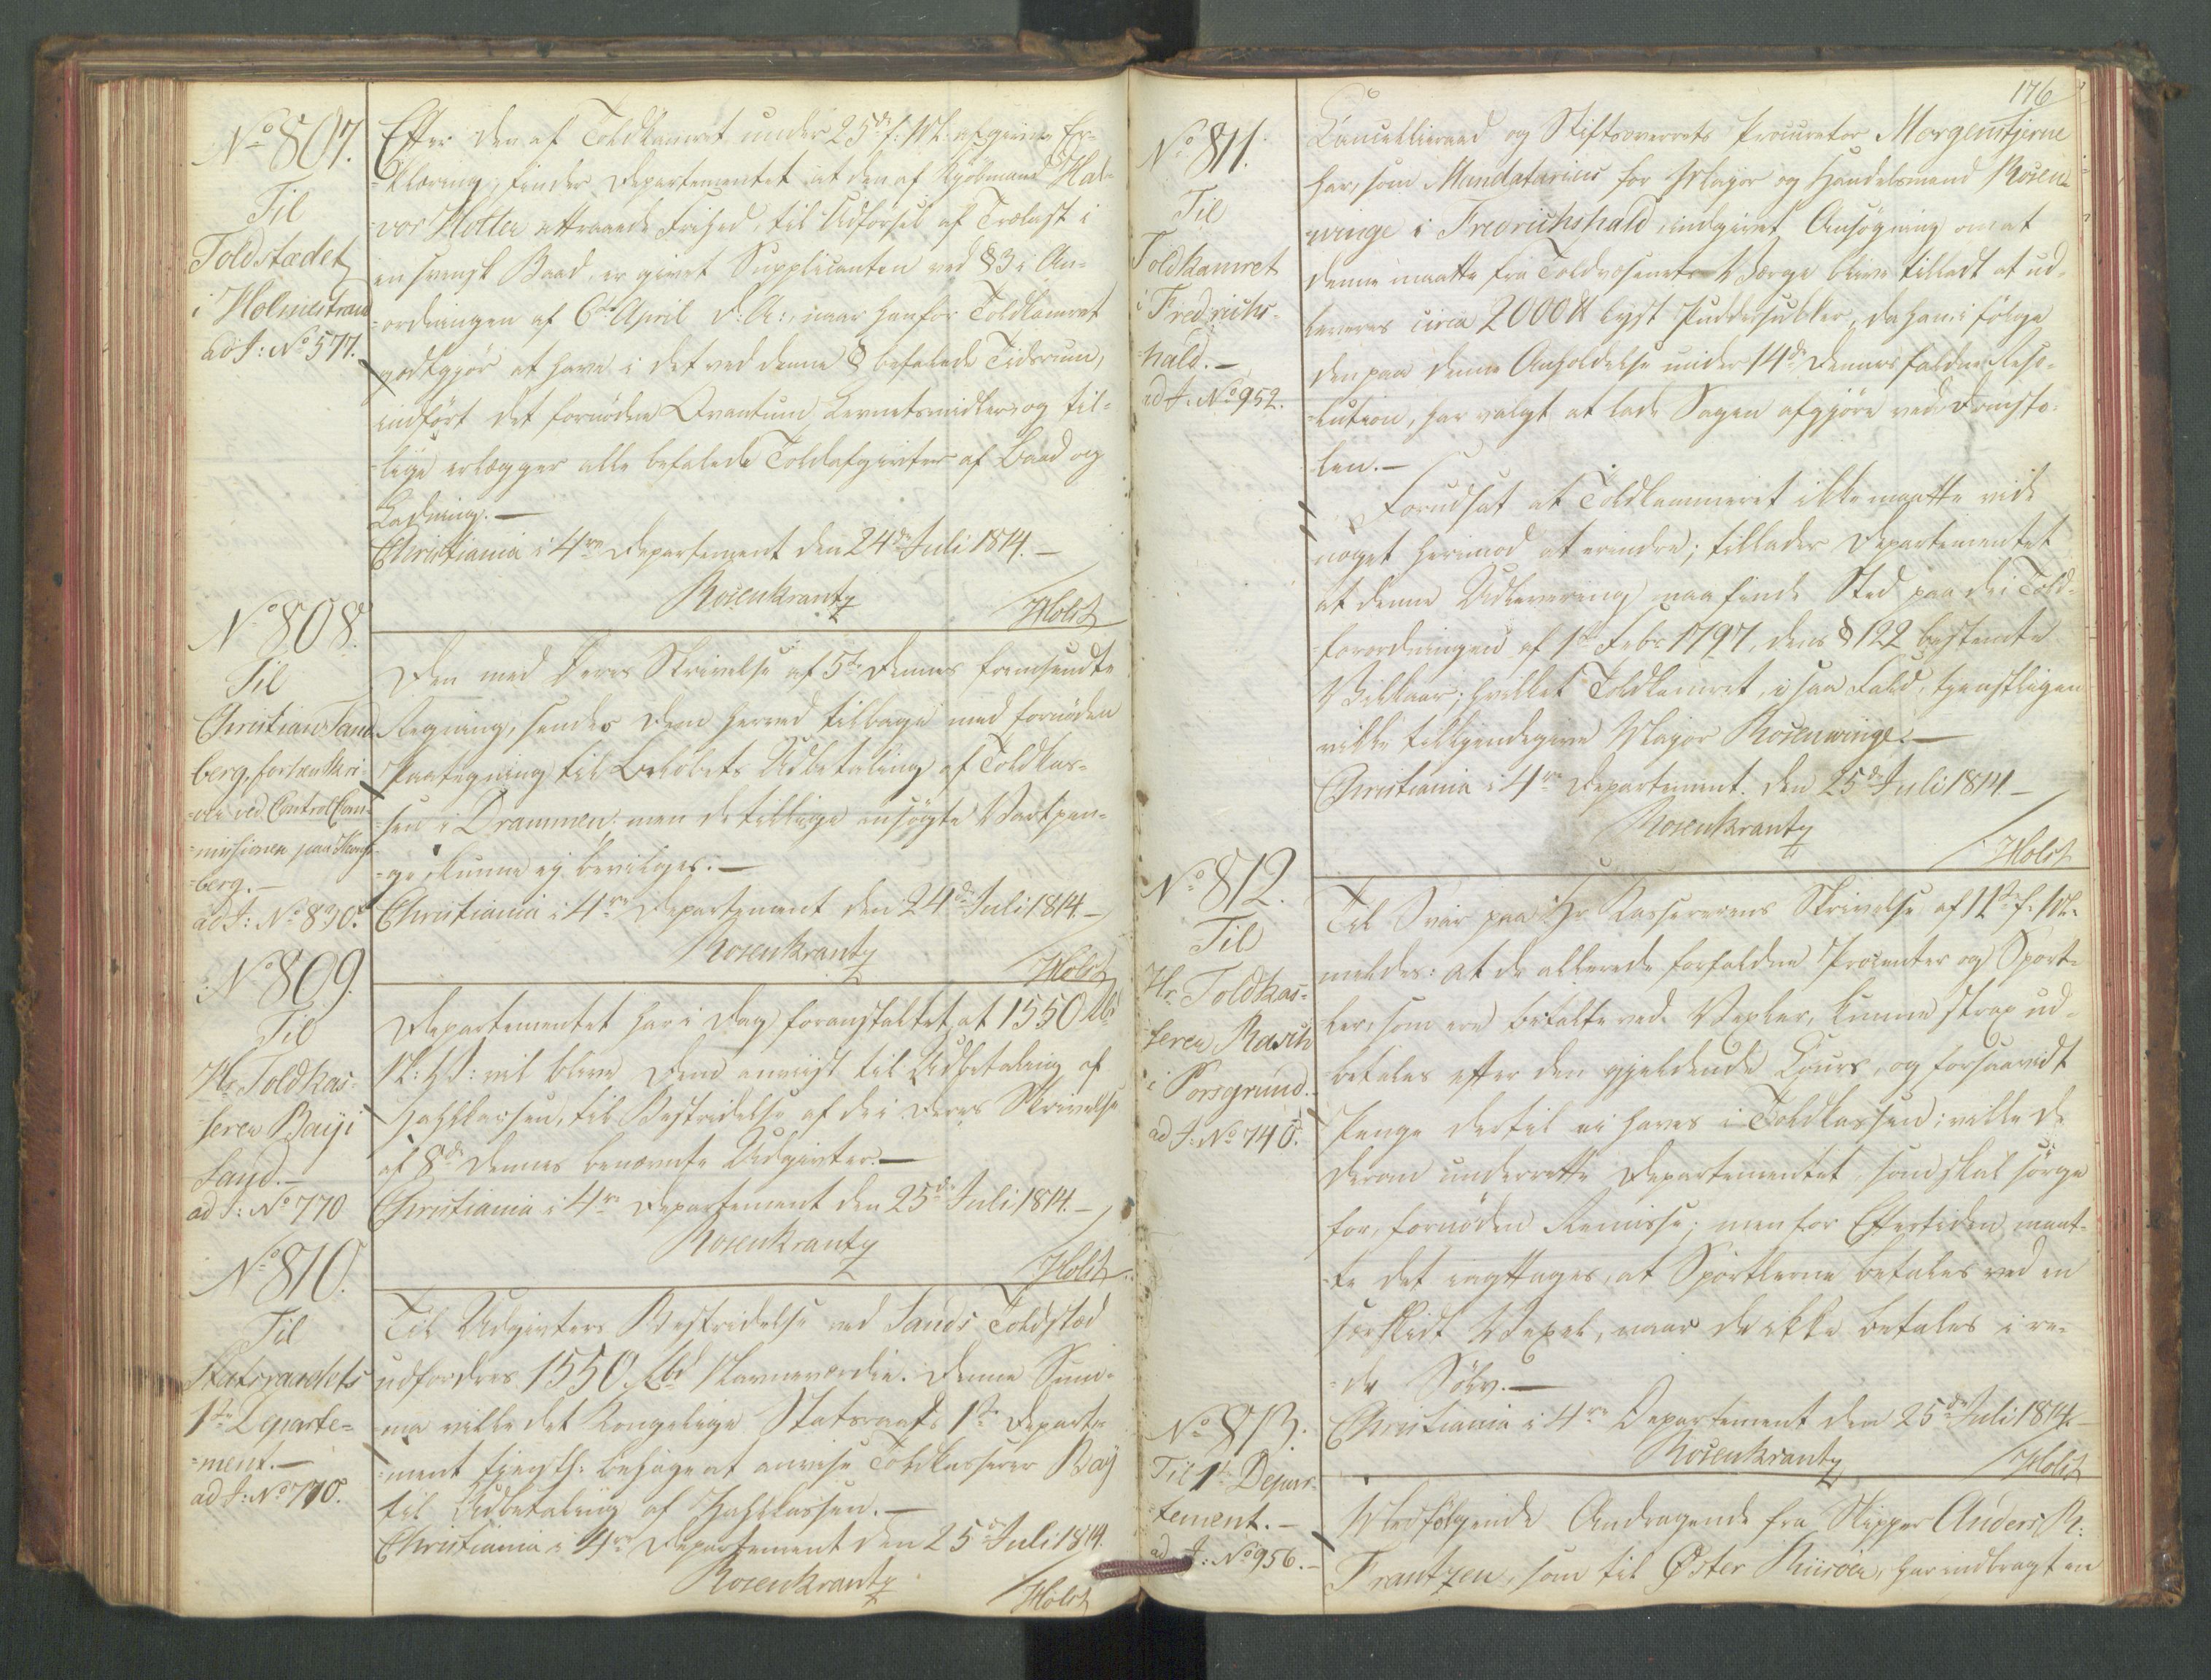 No 807.
Til
Toldstædet
i Holmestrand
ad J: No 577.
Efter den af Toldkamret under 25de f: M: afgivne Er-
-klæring, finder Departementet at den af Kjøbmand Hal-
-vor Holter attraaede Frihed, til Udførsel af Trælast i
en svensk Baad, er givet Supplicanten ved § 3 i An-
-ordningen af 6te April d: A:, naar han for Toldkamret
godtgjør at have i det ved denne § befalede Tidsrum,
indført det fornødne Qvantum Levnetsmidler og til-
-lige erlægger alle befalede Toldafgivter af Baad og
Ladning. —
Christiania i 4re Departement den 24de Juli 1814. —
Rosenkrantz
/Holst
No 808.
Til
Christian Sand-
berg, forhen Skri-
-ver ved Control Com-
-missionen paa Kongs-
-berg. —
ad J: No 830.
Den med Deres Skrivelse af 5te dennes fremsendte
Regning, sendes Dem herved tilbage med fornøden
Paategning til Beløbets Udbetaling af Toldkas-
-sen i Drammen, men de tillige ansøgte Vartpen-
-ge kunne ej bevilges. —
Christiania i 4re Departement den 24de Juli 1814. —
Rosenkrantz
/Holst
No 809.
Til
Hr Toldkas-
serer Bay i
Sand. —
ad J: No 770
Departementet har i Dag foranstaltet, at 1550 Rbd
N: V: vil blive Dem anviist til Udbetaling af
Zahlkassen, til Bestridelse af de i Deres Skrivelse
af 8de dennes benævnte Udgivter. —
Christiania i 4re Departement den 25de Juli 1814. —
Rosenkrantz
/Holst
No 810.
Til
Statsraadets
1ste Departe=
=ment. —
ad J: No 770.
Til Udgivters Bestridelse ved Sands Toldsted
udfordres 1550 Rbd Navneværdie. Denne Sum-
-ma ville det Kongelige Statsraads 1ste Departe-
-ment tjenstl: behage at anvise Toldkasserer Bay
til Udbetaling af Zahlkassen. —
Christiania i 4re Departement den 25de Juli 1814.
Rosenkrantz
/Holst
176
No 811.
Til
Toldkamret
i Fredrichs-
hald. —
ad J. No 952.
Cancelliraad og Stiftsoverrets Procurator Morgenstjerne
har, som Mandatarius for Major og Handelsmand Rosen-
winge i Fredrichshald, indgivet Ansøgning om at
denne maatte fra Toldvæsenets Værge blive tilladt at ud-
leveres circa 2000 ℔ lyst Puddersukker, da han i følge
den paa denne Anholdelse under 14de dennes faldne Reso-
-lution, har valgt at lade Sagen afgjøre ved Domsto-
len. —
Forudsat at Toldkammeret ikke maatte vide
noget herimod at erindre; tillader Departementet
at denne Udlevering maa finde Sted paa de i Told-
-forordningen af 1ste Febr 1797, dens § 122 bestemte
Vilkaar; hvilket Toldkamret, i saa Fald, tjenstligen
ville tilkjendegive Major Rosenwinge. —
Christiania i 4re Departement. den 25de Juli 1814 —
Rosenkrantz
/Holst
No 812.
Til
Hr. Toldkas-
serer Rasch
i Porsgrund. —
ad J: No 740.
Til Svar paa Hr Kassererens Skrivelse af 11te f: M:
meldes: at de allerede forfaldne Procenter og Sport-
ler, som ere betalte ved Vexler, kunne strax ud-
betales efter den gjeldende Cours, og forsaavidt
Penge dertil ei haves i Toldkassen; ville De
derom underrette Departementet, som skal sørge
for, fornøden Remisse; men for Eftertiden maat-
te det iagttages, at Sportlerne betales ved en
særskilt Vexel, naar de ikke betales i re-
-de Sølv. —
Christiania i 4re Departement den 25de Juli 1814.
Rosenkrantz
/Holst
No 813.
Til 1ste Depar-
tement. —
ad J: No 956. —
Medfølgende Andragende fra Skipper Anders R:
Frantzen, som til Øster Riisøer, har indbragt en